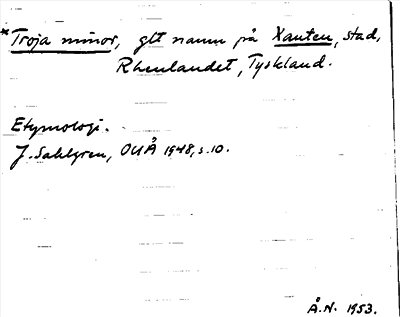 *Troja minor, glt namn på Xanten, stad,
Rhenlandet, Tyskland.
Etymologi.
J. Sahlgren, OUÅ 1948, s. 10.
Å.N. 1953.